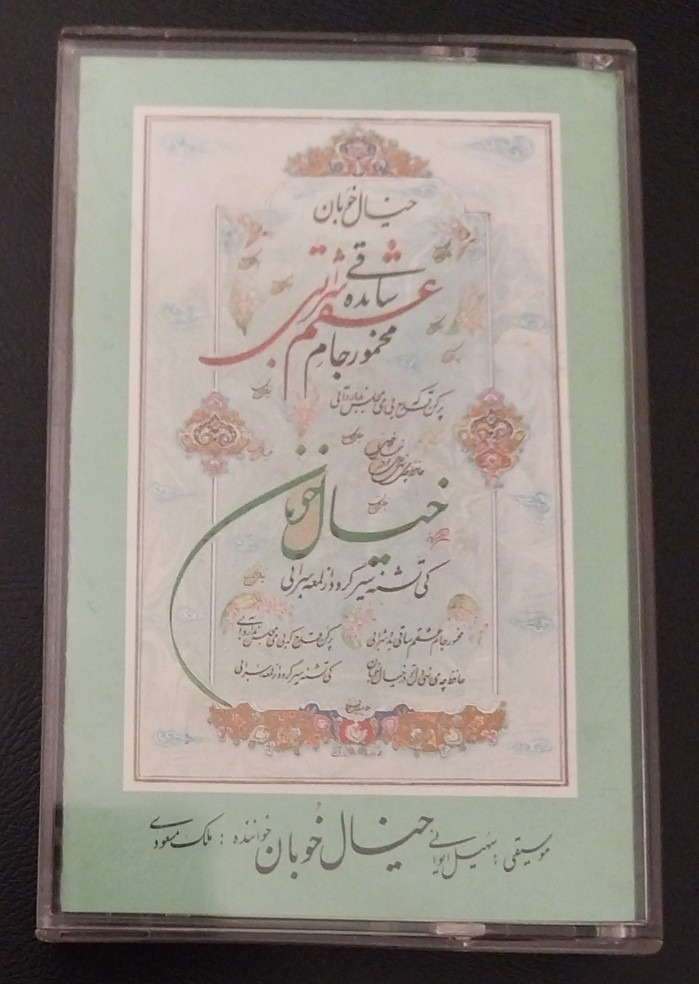 خیال خوبان
مخمور جامِ عشقم ساقی بده شرابی
پر کن قدح که بی می مجلس ندارد آبی
حافظ چه می نهی دل تو در خیال خوبان
خیال خوبان
کی تشنه سیر گردد از لمعه سرابی
مخمور جام عشقم ساقی بده شرابی پر کن قدح که بی می مجلس ندارد آبی
حافظ چه می نهی دل تو در خیال خوبان کی تشنه سیر گردد از لمعه سرابی
موسیقی : سهیل ایوانی خیال خُوبان خواننده : ملک مسعودی